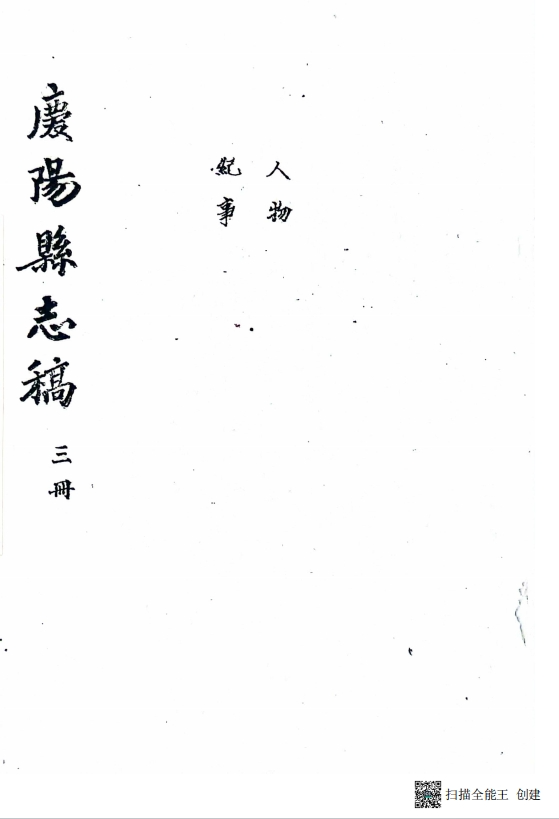 人物
紀事
慶陽縣志稿 三冊
扫描全能王 创建